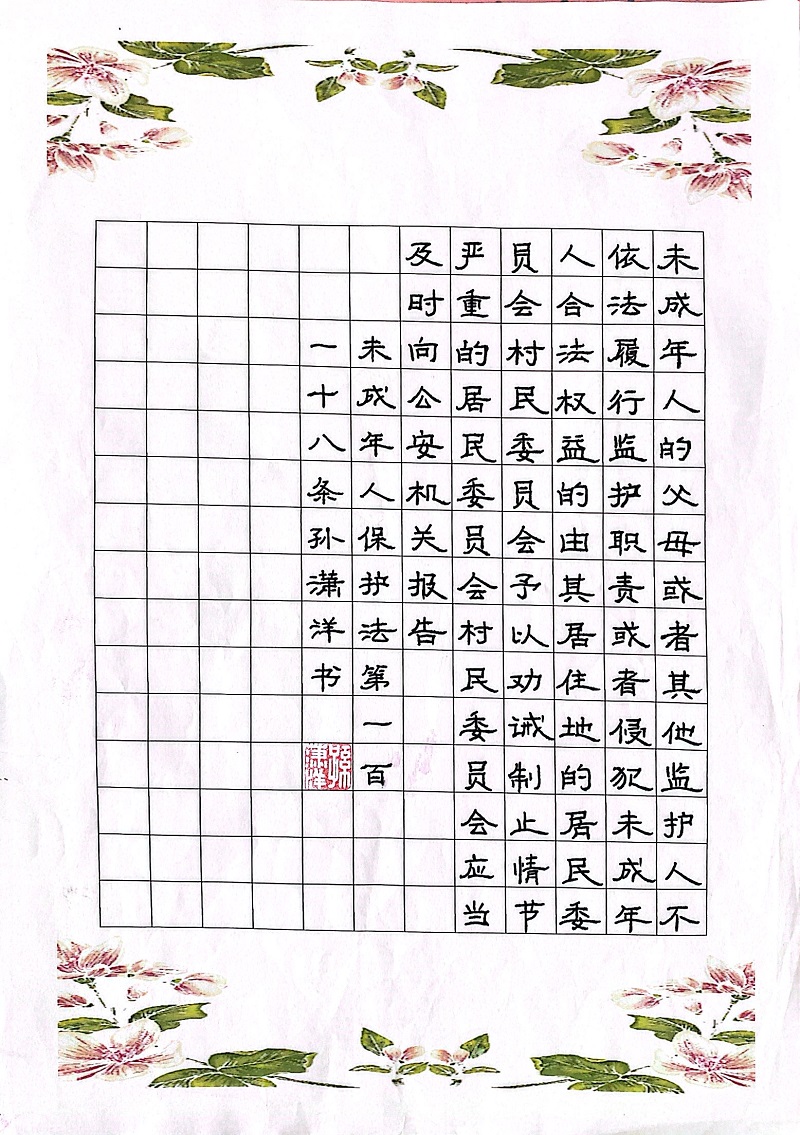 未成年人的父母或者其他监护人不
依法履行监护职责或者侵犯未成年
人合法权益的由其居住地的居民委
员会村民委员会予以劝诫制止情节
严重的居民委员会村民委员会应当
及时向公安机关报告
未成年人保护法第一百
一十八条孙潇洋书